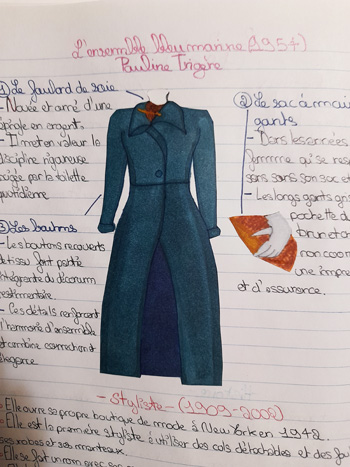 L'ensemble bleu marine (1954)
Pauline Trigère
① Le foulard de soie
- Nouée et orné d'une
épingle en argent.
- Il met en valeur la
discipline rigoureuse
exigée par la toilette
quotidienne
② Le sac à main
gants
- Dans les années
femme qui se res
sans sans son sac et
- Les longs gants gris
pochette d
brun et or
non coor
une impre
et d'assurance.
③ Les boutons
- Les boutons recouverts
de tissu font partie
intégrante du décorum
vestimentaire.
- Ces détails renforcent
l'harmonie d'ensemble
et combine correction et
élégance
- Styliste - (1909-2002)
- Elle ouvre sa propre boutique de mode à New York en 1942.
- Elle est la première styliste à utiliser des cols détachables et des fou
ses robes et ses manteaux.
- Elle se fait un nom avec son